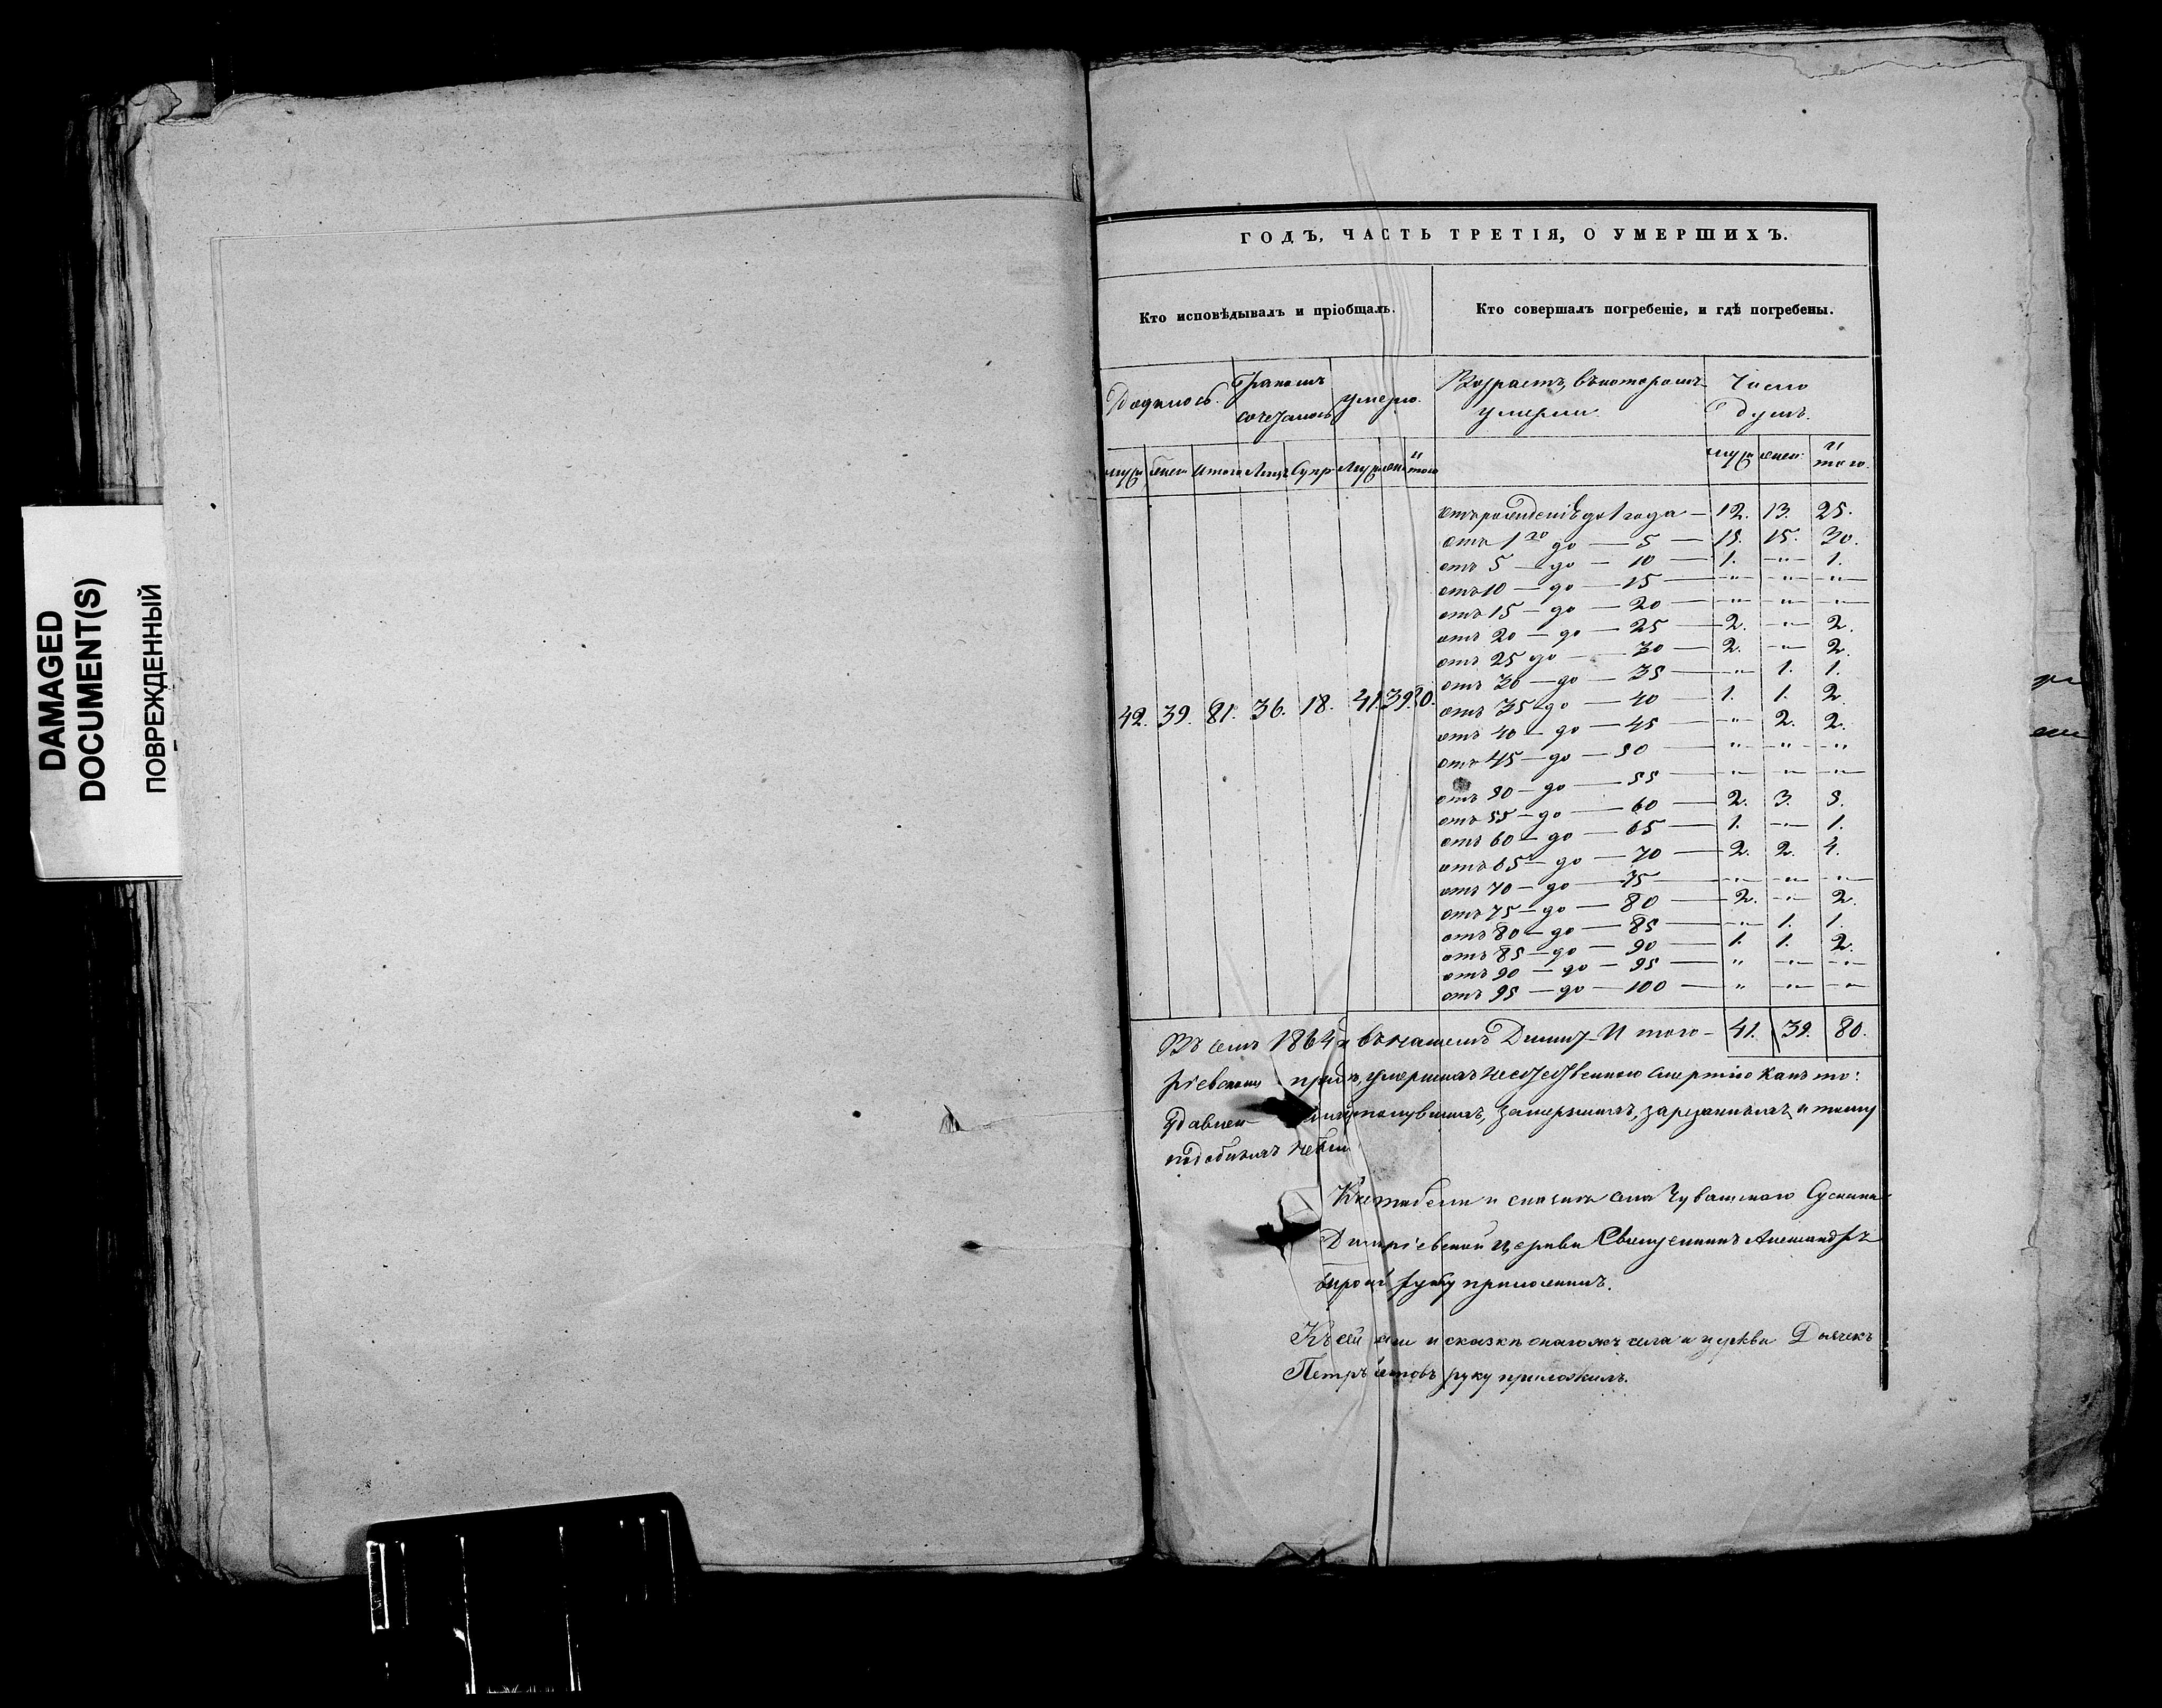 DAMAGED
DOCUMENT(S)
ПОВРЕЖДЕННЫЙ
ГОДЪ, ЧАСТЬ ТРЕТІЯ, О УМЕРШИХЪ.
Кто исповѣдывалъ и пріобщалъ. Кто совершалъ погребеніе, и гдѣ погребены.
Родилось. Бракомъ сочеталось умерло. Возрастъ, въ которомъ умерли. Число душъ.
муж жен Итого Лицъ Супр Муж жен Итого муж жен Итого.
отъ рожденія до 1 года — 12. 13. 25.
отъ 1 го до — 5 — 15. 15. 30.
отъ 5 — до — 10 — 1. " 1.
отъ 10 — до — 15 — " " "
отъ 15 — до — 20 — " " "
отъ 20 — до — 25 — 2. " 2.
отъ 25 до — 30 — 2. " 2.
отъ 30 — до — 35 — " 1. 1.
42. 39. 81. 36. 18. 41. 39. 80.
отъ 35 — до — 40 — 1. 1. 2.
отъ 40 — до — 45 — " 2. 2.
отъ 45 — до — 50 — " " "
отъ 50 — до — 55 — " " "
отъ 55 — до — 60 — 2. 3. 5.
отъ 60 — до — 65 — 1. " 1.
отъ 65 — до — 70 — 2. 2. 4.
отъ 70 — до — 75 — " " "
отъ 75 — до — 80 — 2. " 2.
отъ 80 — до — 85 — " 1. 1.
отъ 85 — до — 90 — 1. 1. 2.
отъ 90 — до — 95 — " " "
отъ 95 — до — 100 — " " "
Въ семъ 1864 въ нашемъ Димит- Итого — 41. 39. 80.
ріевскомъ умершихъ неестественною смертію какъ то:
удавлен утонувшихъ, замерзшихъ, зарезанныхъ и тому
подобныхъ небыло
села Чувашскаго
Димитріевской церкви Священникъ Александръ
руку приложилъ.
Къ сей и сказкѣ онагожъ села и церкви Дьячекъ
Петръ руку приложилъ.